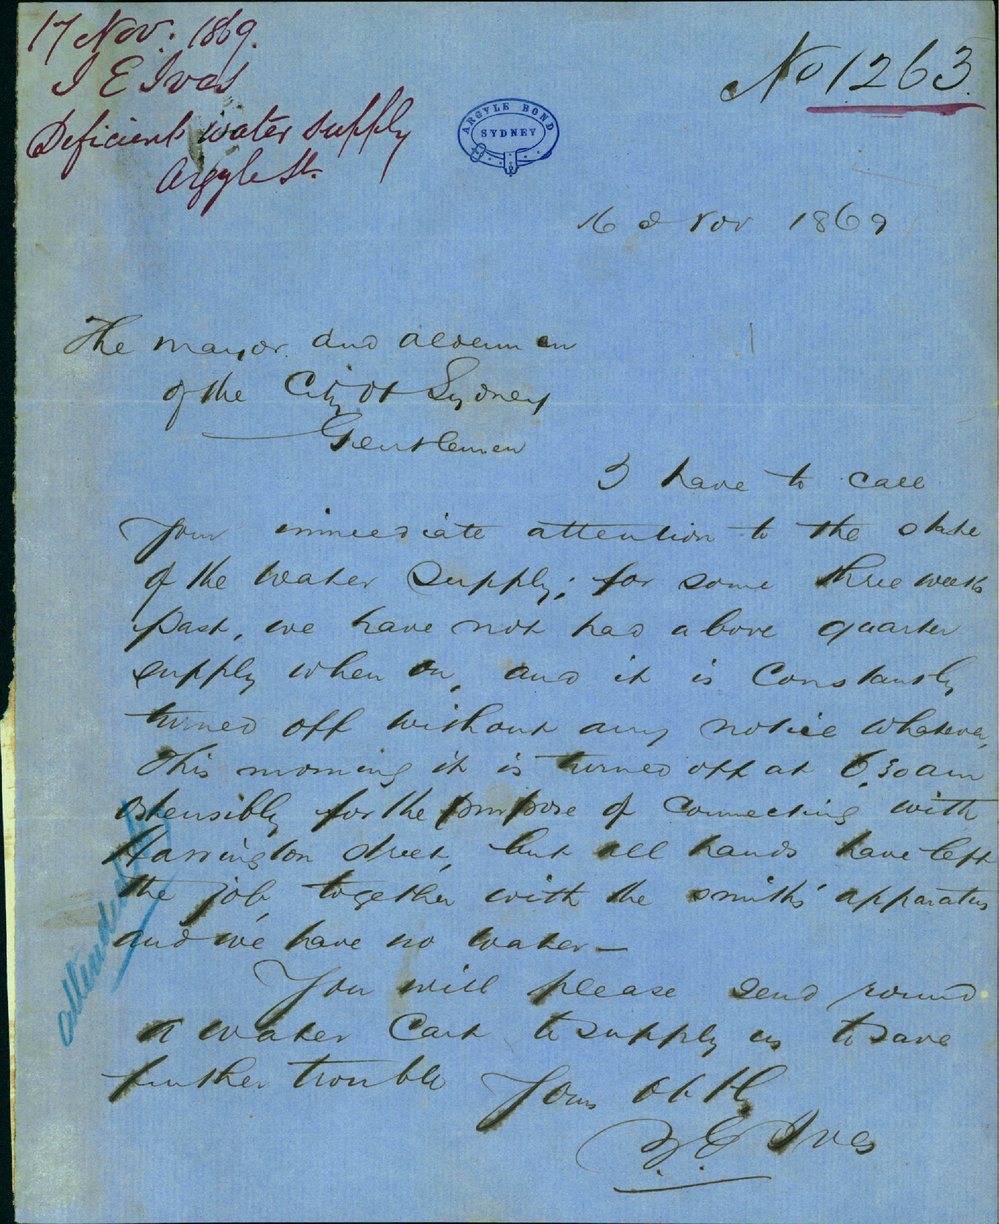 17 Nov: 1869.
I E Ives
Deficient water supply
Argyle St.
No 1263
ARGYLE BOND
SYDNEY
16 Nov 1869
The Mayor and Aldermen
of the City of Sydney
Gentlemen
I have to call
your immediate attention to the state
of the water supply; for some three weeks
past, we have not had above quarter
supply when on, and it is constantly
turned off without any notice whatever,
This morning it is turned off at 6.30am
ostensibly for the purpose of connecting with
Harrington Street, but all hands have left
the job, together with the smiths' apparatus
and we have no water —
attended to
You will please send round
a water cart to supply us to save
further trouble
Yours obtly
E Ives